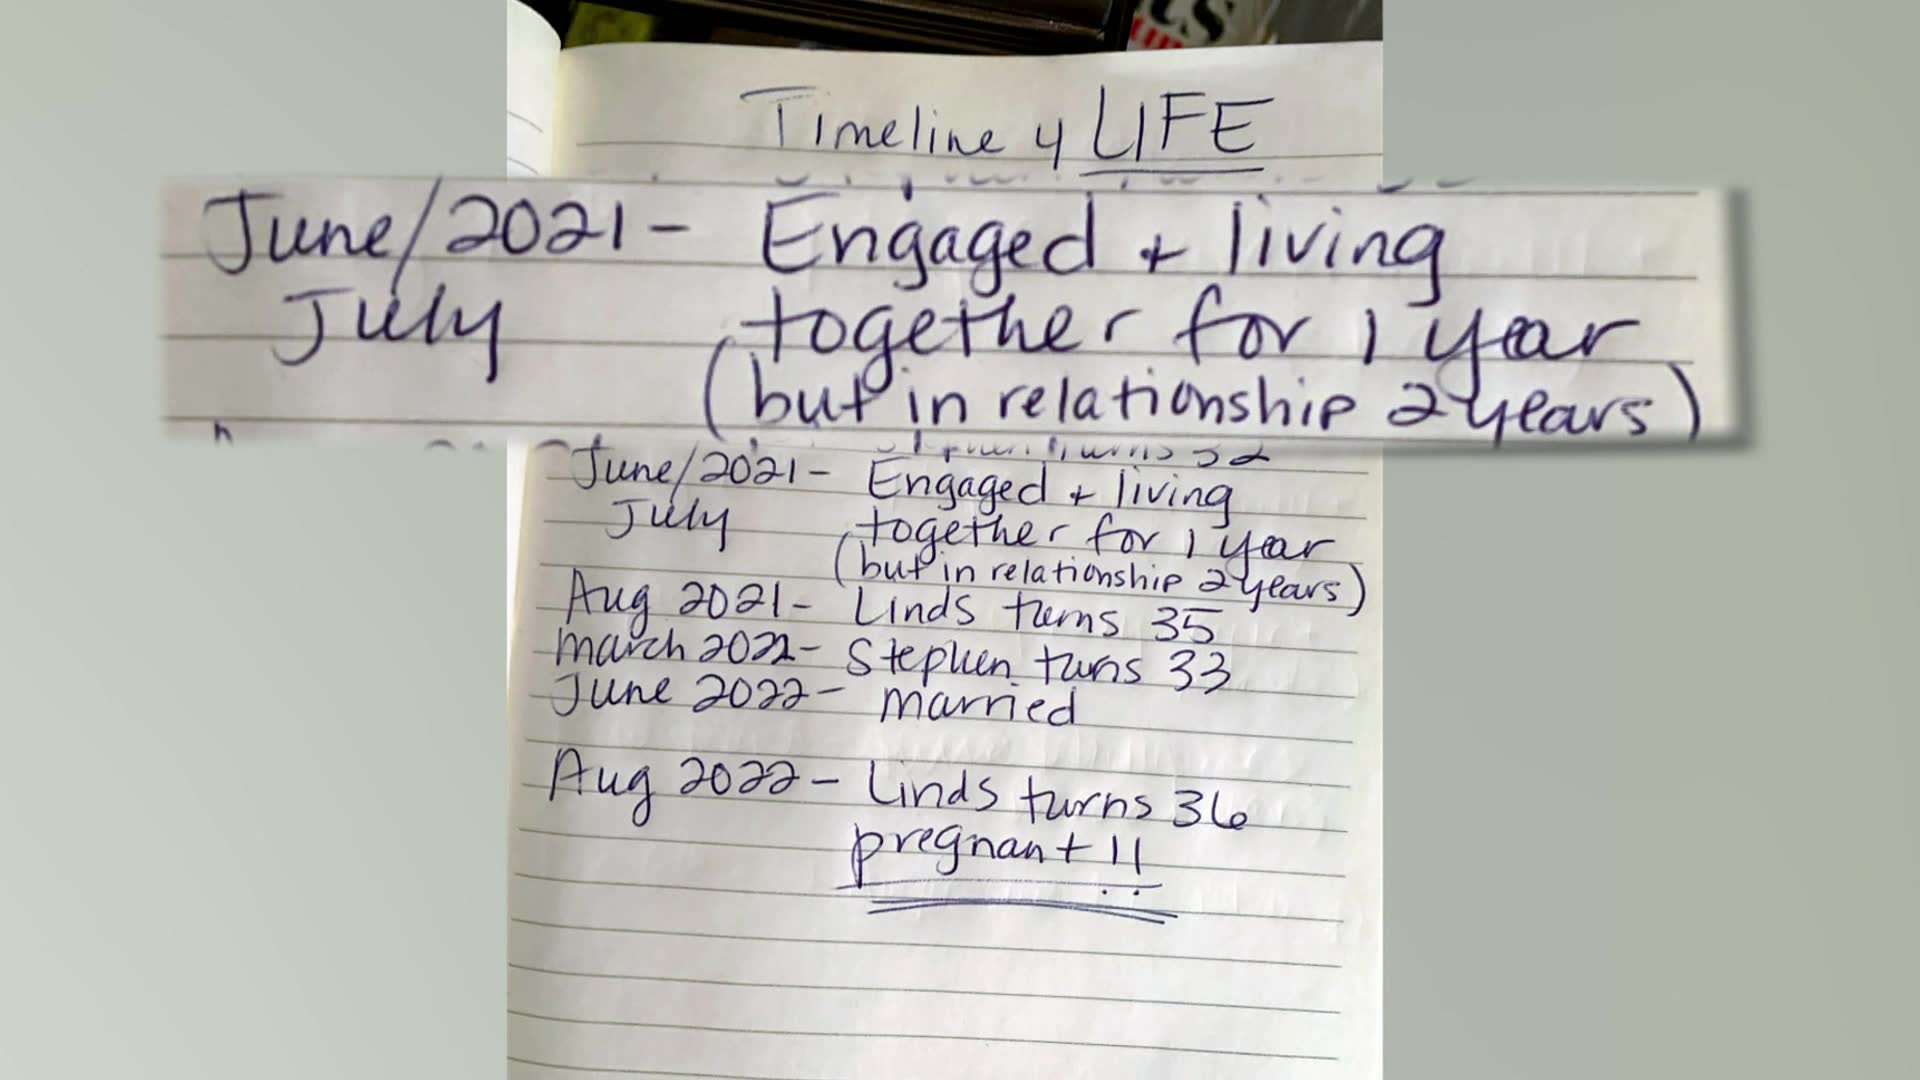 Timeline 4 LIFE
June/2021 - Engaged + living
July together for 1 year
(but in relationship 2 years)
turns 32
June/2021 - Engaged + living
July together for 1 year
(but in relationship 2 years)
Aug 2021 - Linds turns 35
March 2022 - Stephen turns 33
June 2022 - married
Aug 2022 - Linds turns 36
pregnant!!